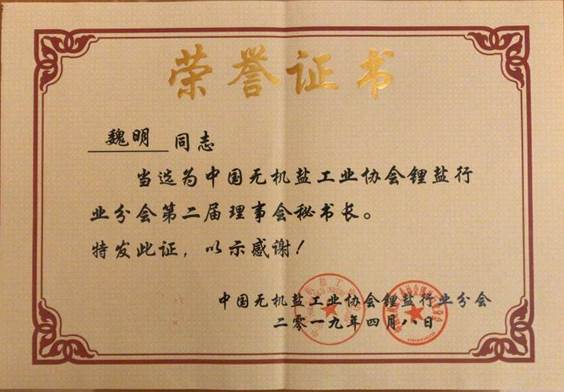 荣誉证书
魏明 同志
当选为中国无机盐工业协会锂盐行
业分会第二届理事会秘书长。
特发此证，以示感谢！
中国无机盐工业协会锂盐行业分会
二零一九年四月八日